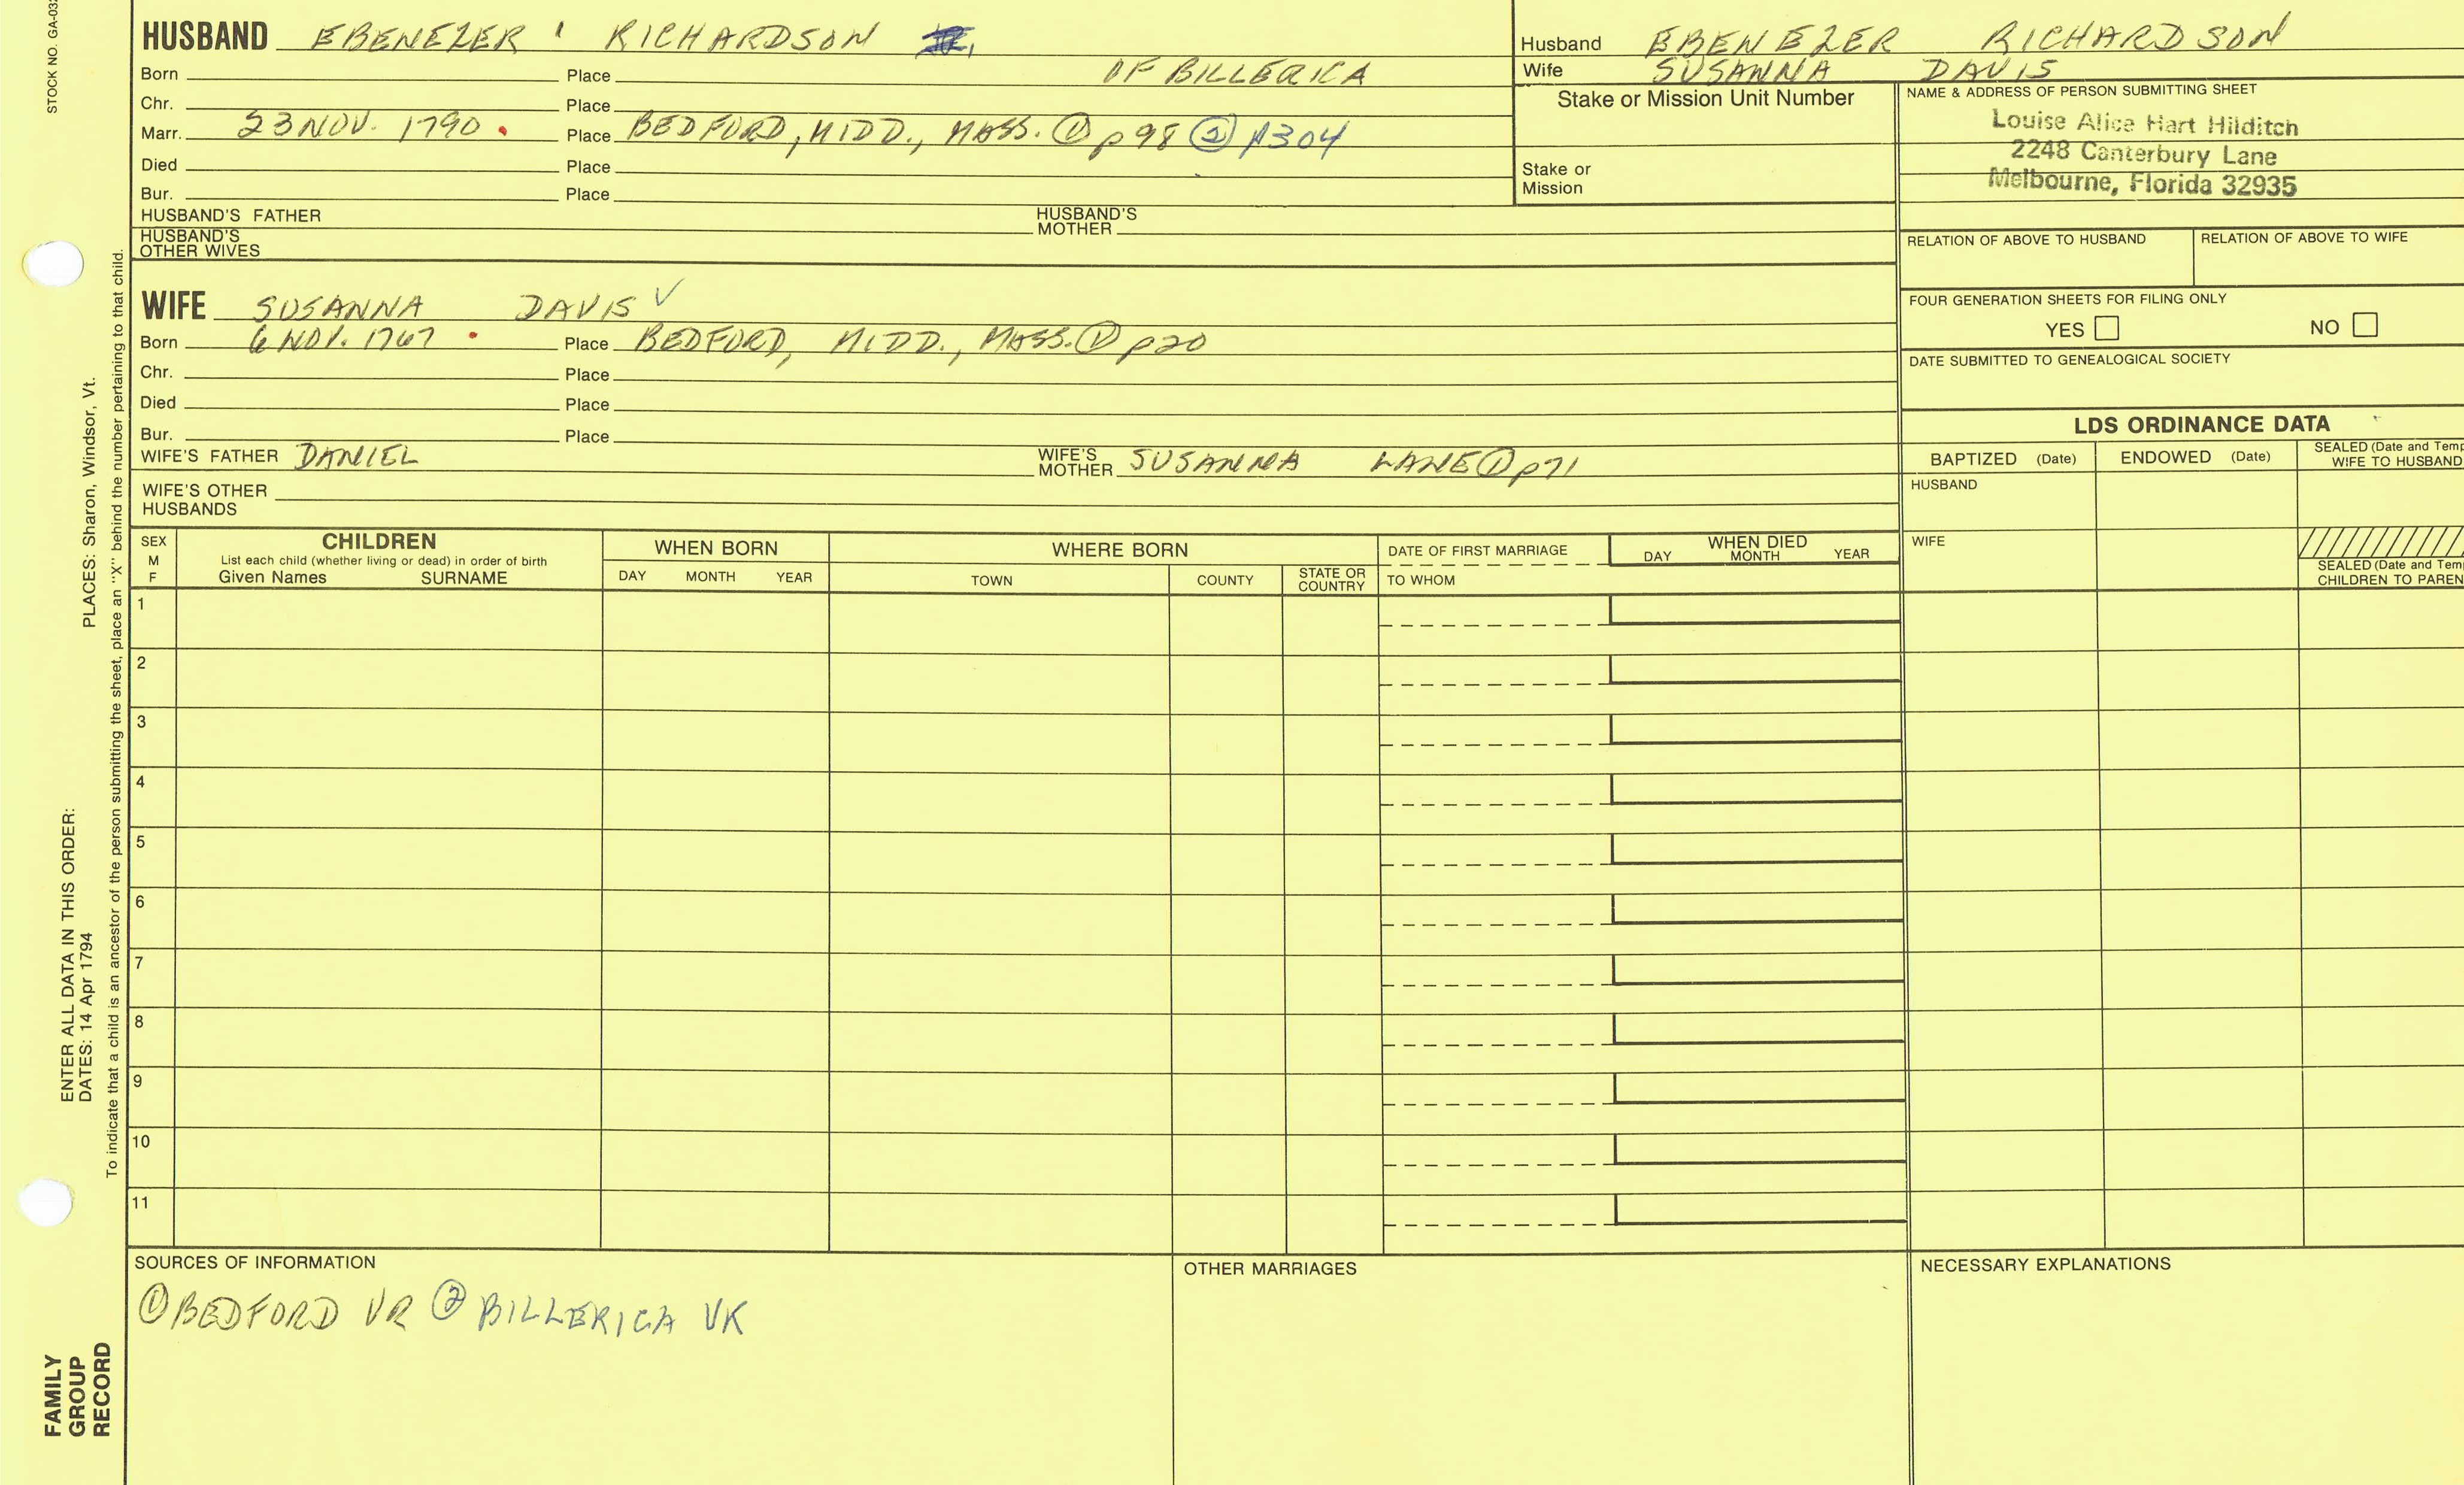 STOCK NO. GA-032
HUSBAND EBENEZER RICHARDSON
Born Place OF BILLERICA
Chr. Place
Marr. 23 NOV. 1790 Place BEDFORD, MIDD., MASS. ① p98 ② p304
Died Place
Bur. Place
HUSBAND'S FATHER HUSBAND'S MOTHER
HUSBAND'S OTHER WIVES
Husband EBENEZER RICHARDSON
Wife SUSANNA DAVIS
Stake or Mission Unit Number
Stake or
Mission
NAME & ADDRESS OF PERSON SUBMITTING SHEET
Louise Alice Hart Hilditch
2248 Canterbury Lane
Melbourne, Florida 32935
RELATION OF ABOVE TO HUSBAND RELATION OF ABOVE TO WIFE
FOUR GENERATION SHEETS FOR FILING ONLY
YES NO
DATE SUBMITTED TO GENEALOGICAL SOCIETY
WIFE SUSANNA DAVIS ✓
Born 6 NOV. 1767 Place BEDFORD, MIDD., MASS. ① p20
Chr. Place
Died Place
Bur. Place
WIFE'S FATHER DANIEL WIFE'S MOTHER SUSANNA LANE ① p71
WIFE'S OTHER
HUSBANDS
LDS ORDINANCE DATA
BAPTIZED (Date) ENDOWED (Date) SEALED (Date and Temp
WIFE TO HUSBAND
HUSBAND
WIFE
SEALED (Date and Tem
CHILDREN TO PAREN
SEX
M
F
CHILDREN
List each child (whether living or dead) in order of birth
Given Names SURNAME
WHEN BORN
DAY MONTH YEAR
WHERE BORN
TOWN COUNTY STATE OR COUNTRY
DATE OF FIRST MARRIAGE
TO WHOM
WHEN DIED
DAY MONTH YEAR
1
2
3
4
5
6
7
8
9
10
11
SOURCES OF INFORMATION
① BEDFORD VR ② BILLERICA VR
OTHER MARRIAGES
NECESSARY EXPLANATIONS
ENTER ALL DATA IN THIS ORDER:
DATES: 14 Apr 1794 PLACES: Sharon, Windsor, Vt.
To indicate that a child is an ancestor of the person submitting the sheet, place an "X" behind the number pertaining to that child.
FAMILY
GROUP
RECORD